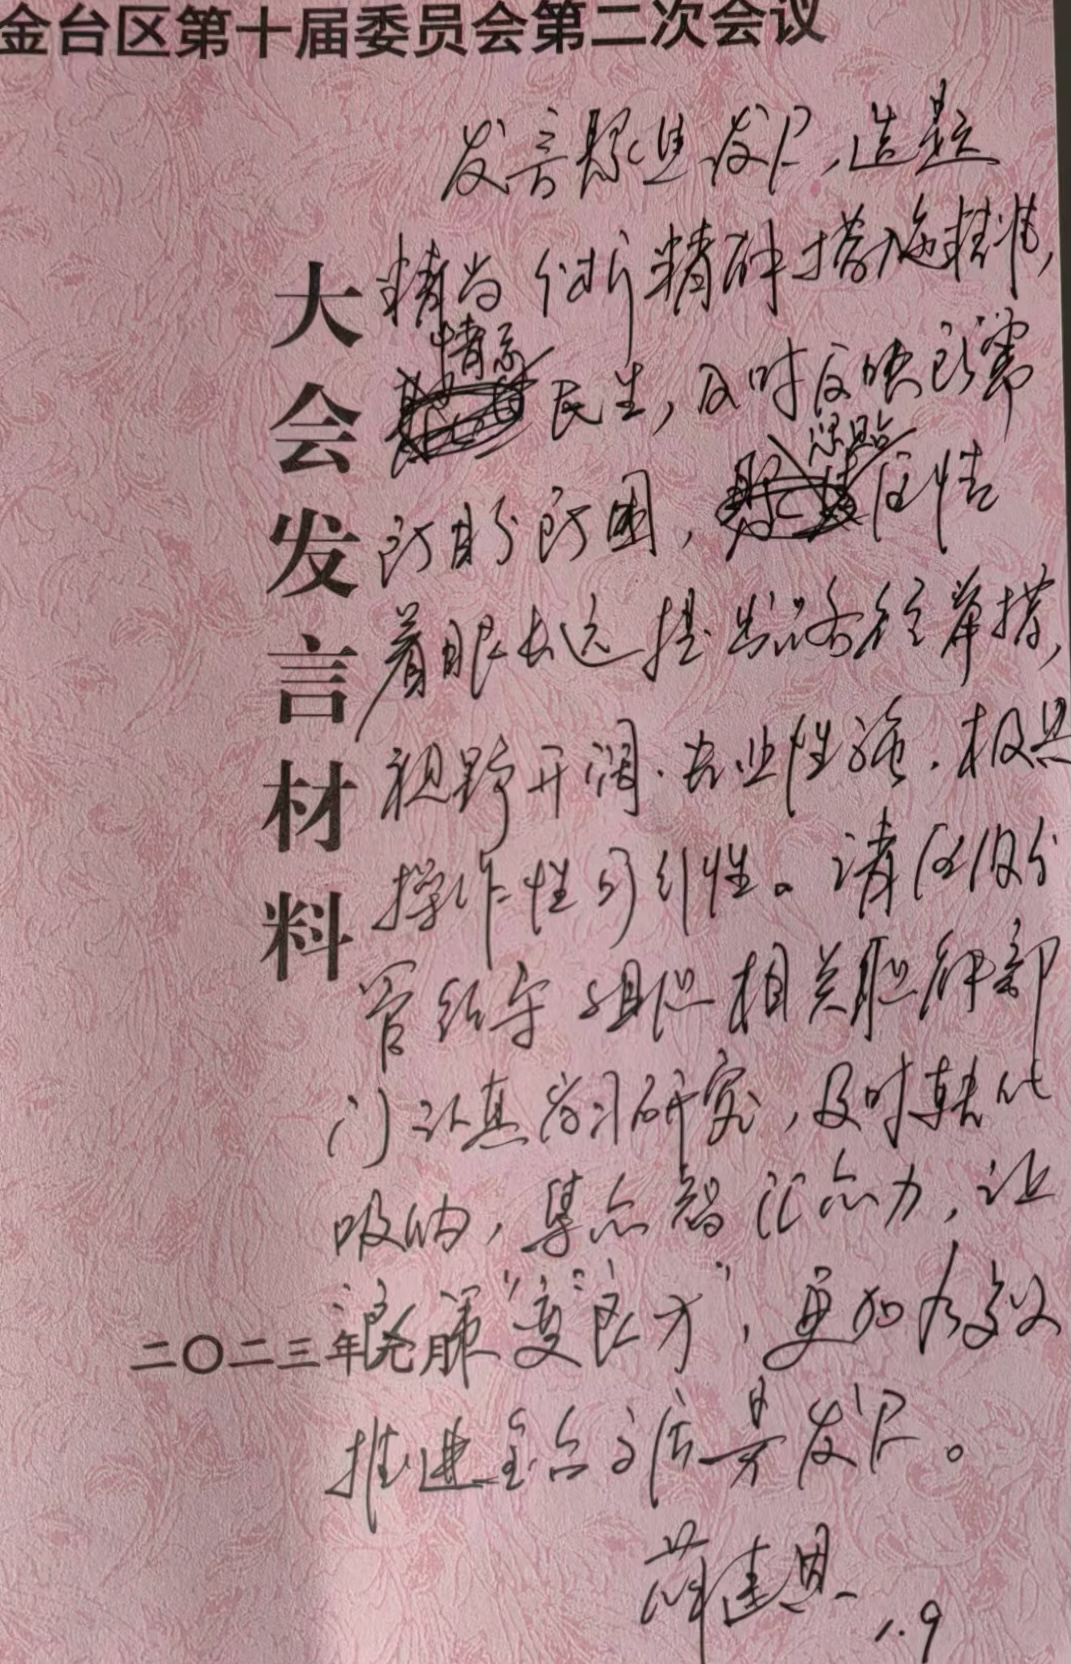 金台区第十届委员会第二次会议
大会发言材料
二〇二三年 月
发言聚焦发展,选题
精当 分析精研 措施精准,
情系民生,及时反映所需
所盼所困,区情
着眼长远提出路径举措,
视野开阔、专业性强、极具
操作性可行性。请区级分
管领导组织相关职能部
门认真学习研究,及时转化
吸纳,集众智汇众力,让
“良策”变“良方”,更加有效
推进金台高质量发展。
薛建恩
1.9